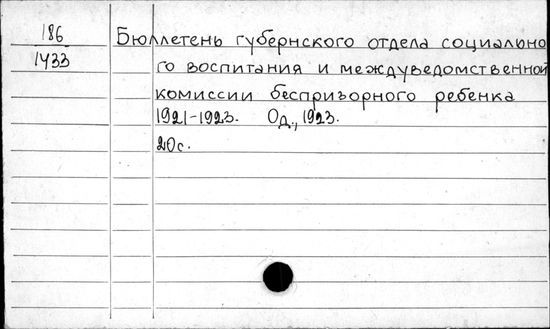 186
1433
Бюллетень губернского отдела социально
го воспитания и междуведомственной
комиссии беспризорного ребенка
1921-1923. Од., 1923.
20с.